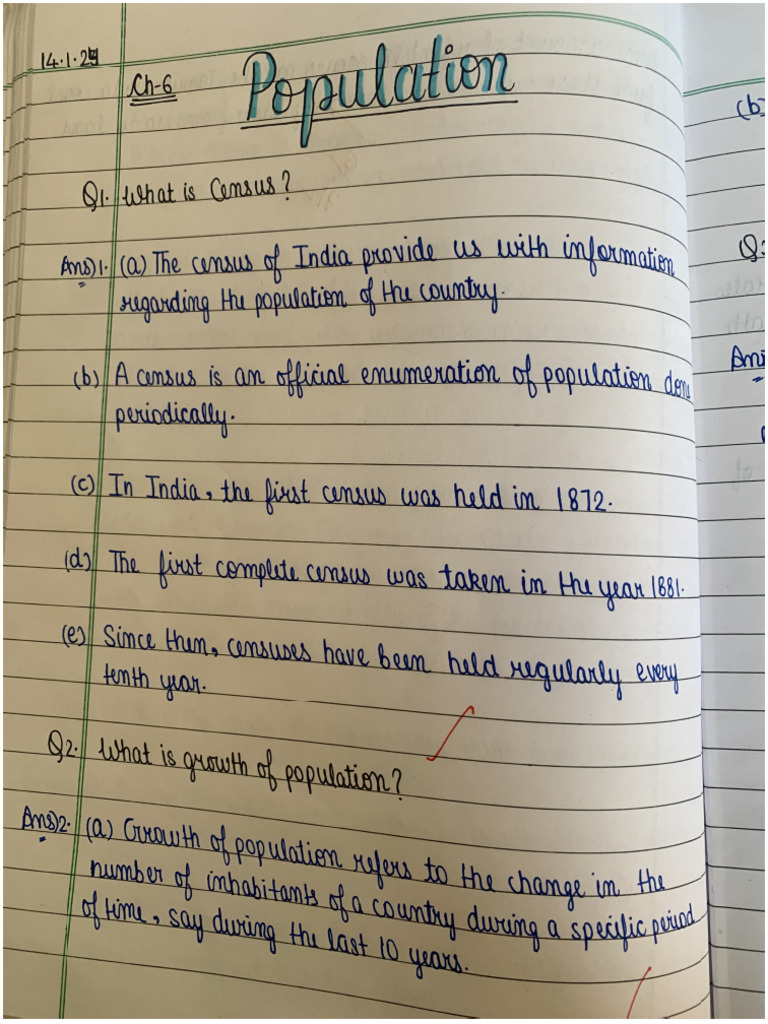 14.1.25
Ch-6 Population
Q1. What is Census?
Ans)1. (a) The census of India provide us with information
regarding the population of the country.
(b) A census is an official enumeration of population done
periodically.
(c) In India, the first census was held in 1872.
(d) The first complete census was taken in the year 1881.
(e) Since then, censuses have been held regularly every
tenth year.
Q2. What is growth of population?
Ans)2. (a) Growth of population refers to the change in the
number of inhabitants of a country during a specific period
of time, say during the last 10 years.
(b)
Ans